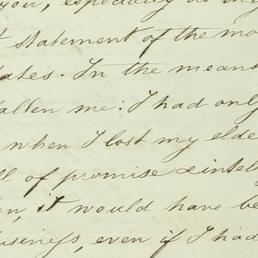 you, especially as my
statement of the mo
ates. In the means
fallen me: I had only
when I lost my elde
ll of promise & intell
en, it would have be
usiness, even if I had